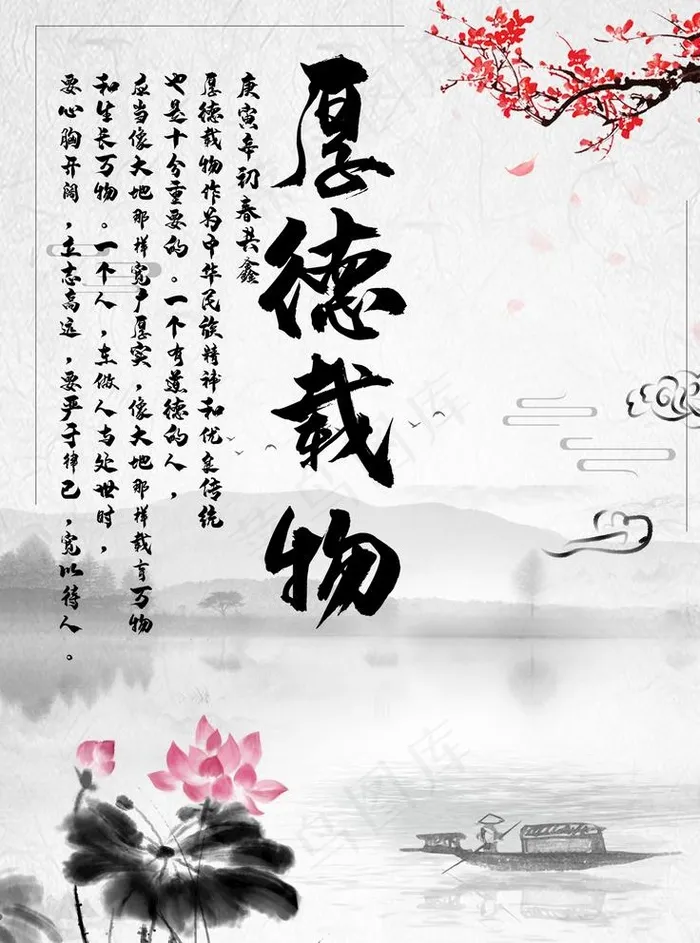 厚德载物
庚寅年初春共鑫
厚德载物作为中华民族精神和优良传统
也是十分重要的。一个有道德的人，
应当像大地那样宽广厚实，像大地那样载育万物
和生长万物。一个人，在做人与处世时，
要心胸开阔，立志高远，要严于律己，宽以待人。